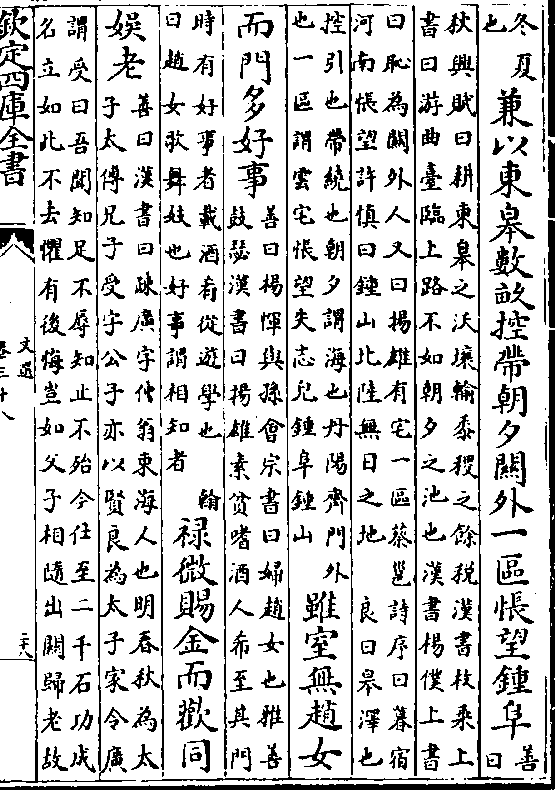 冬夏
也
兼以東皋數畝控帶朝夕關外一區悵望鍾阜
善
曰
秋興賦曰耕東皋之沃壤輸黍稷之餘税漢書枚乘上
書曰游曲臺臨上路不如朝夕之池也漢書楊僕上書
曰恥為關外人又曰揚雄有宅一區蔡邕詩序曰暮宿
河南悵望許慎曰鍾山北陸無日之地 良曰皋澤也
控引也帶繞也朝夕謂海也丹陽齊門外
也一區謂雲宅悵望失志皃鍾阜鍾山
雖室無趙女
而門多好事
善曰楊惲與孫會宗書曰婦趙女也雅善
鼓瑟漢書曰揚雄素貧嗜酒人希至其門
時有好事者載酒肴從遊學也 翰
曰趙女歌舞妓也好事謂相知者
祿微賜金而歡同
娯老
善曰漢書曰疎廣字仲翁東海人也明春秋為太
子太傅兄子受字公子亦以賢良為太子家令廣
謂受曰吾聞知足不辱知止不殆今仕至二千石功成
名立如此不去懼有後悔豈如父子相隨出關歸老故
欽定四庫全書
文選
卷三十八